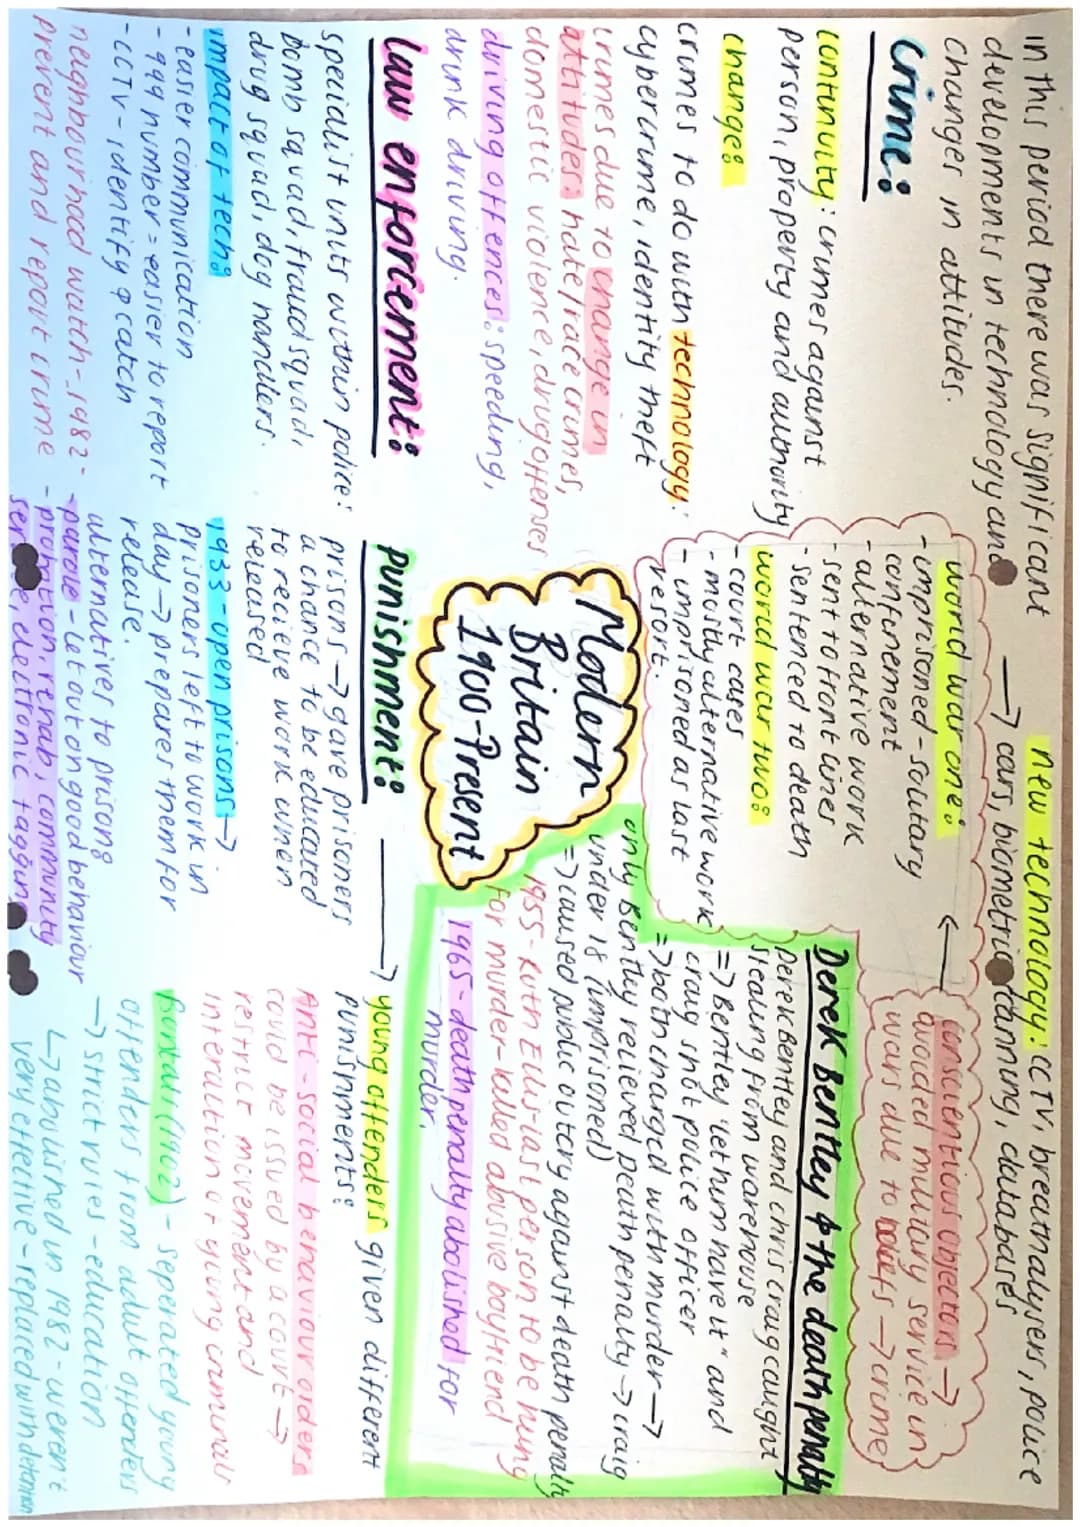 in this period there was significant
developments in technology and
changes in attitudes.
Crime:
continuity: crimes against
person, property and authority
change:
crimes to do with technology:
cybercrime, identity theft
crimes due to change in
attitudes: hate/race crimes,
domestic violence, drug offenses
driving offences: speeding,
drink driving.
Law enforcement:
specialist units within police:
bomb squad, fraud squad,
drug squad, dog handlers.
impact of tech:
- easier communication
- 999 number = easier to report
- CCTV - identify & catch
neighbourhood watch - 1982 -
prevent and report crime
new technology: CCTV, breathalysers, police
→ cars, biometric scanning, databases
world war one:
- imprisoned - solitary
confinement
- alternative work
- sent to front lines
- sentenced to death
world war two:
- court cases
- mostly alternative work
- imprisoned as last
resort.
conscientious objectors →
avoided military service in
wars due to beliefs → crime
Modern
Britain
1900-Present
Derek Bentley & the death penalty
Derek Bentley and chris craig caught
stealing from warehouse
=> Bentley "let him have it" and
craig shot police officer
=> both charged with murder →
only Bentley recieved death penalty → craig
under 18 (imprisoned)
=> caused public outcry against death penalty
1955 - Ruth Ellis - last person to be hung
for murder - killed abusive boyfriend
1965 - death penalty abolished for
murder.
Punishment:
prisons → gave prisoners
a chance to be educated
to recieve work when
released
1933 - open prisons →
prisoners left to work in
day → prepares them for
release.
alternatives to prison:
- parole - let out on good behaviour
- probation, rehab, community
electronic tagging
→ young offenders given different
punishments:
Anti-social behaviour orders
could be issued by a court →
restrict movement and
interaction of young criminals
Borstal (1902) - seperated young
offenders from adult offenders
→ strict rules - education
↳ abolished in 1982 - weren't
very effective - replaced with detention